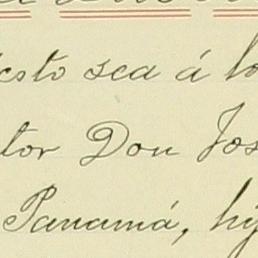 esto sea á lo
tor Don Jos
Panamá, hij